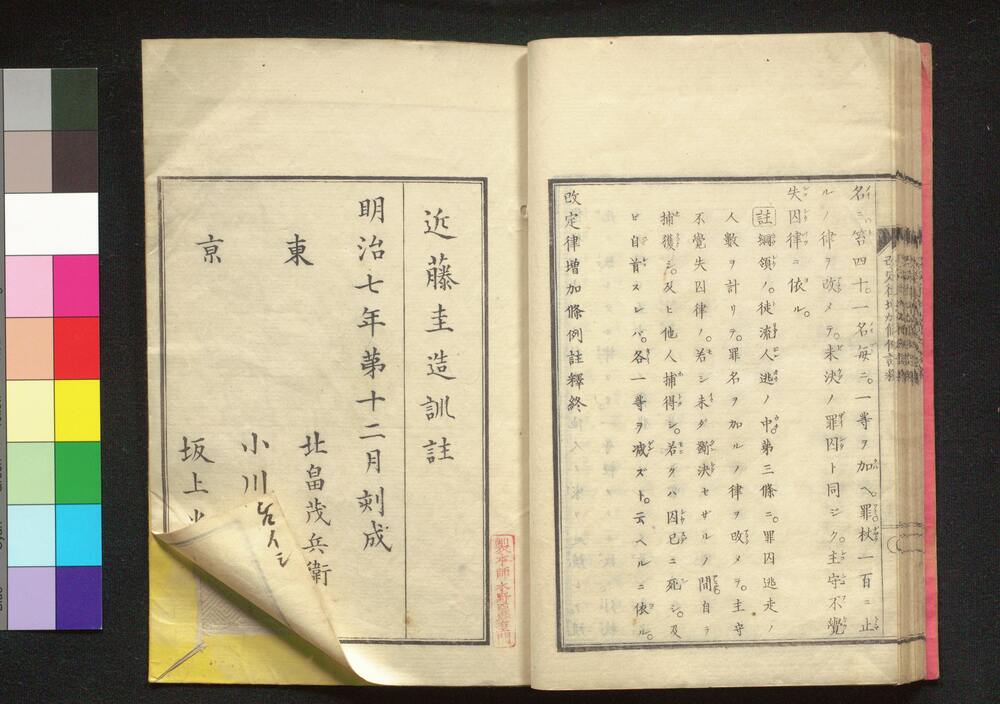 名ニ笞四十。一名毎ニ。一等ヲ加ヘ。罪杖一百ニ止
ルノ律ヲ改メテ。未決ノ罪囚ト同ジク。主守不覺
失囚律ニ依ル。
註 綱領ノ。徒流人逃ノ中。第三條ニ。罪囚逃走ノ
人數ヲ計リテ。罪名ヲ加ルノ律ヲ改メテ。主守
不覺失囚律ノ。若シ未ダ斷決セザルノ間自ラ
捕獲シ。及ヒ他人捕得シ。若クハ囚已ニ死シ。及
ヒ自首スレバ。各一等ヲ减ズト。云ヘルニ依ル。
改定律增加條例註釋終
近藤圭造訓註
明治七年第十二月刻成
東
北畠茂兵衛
小川
京
坂上